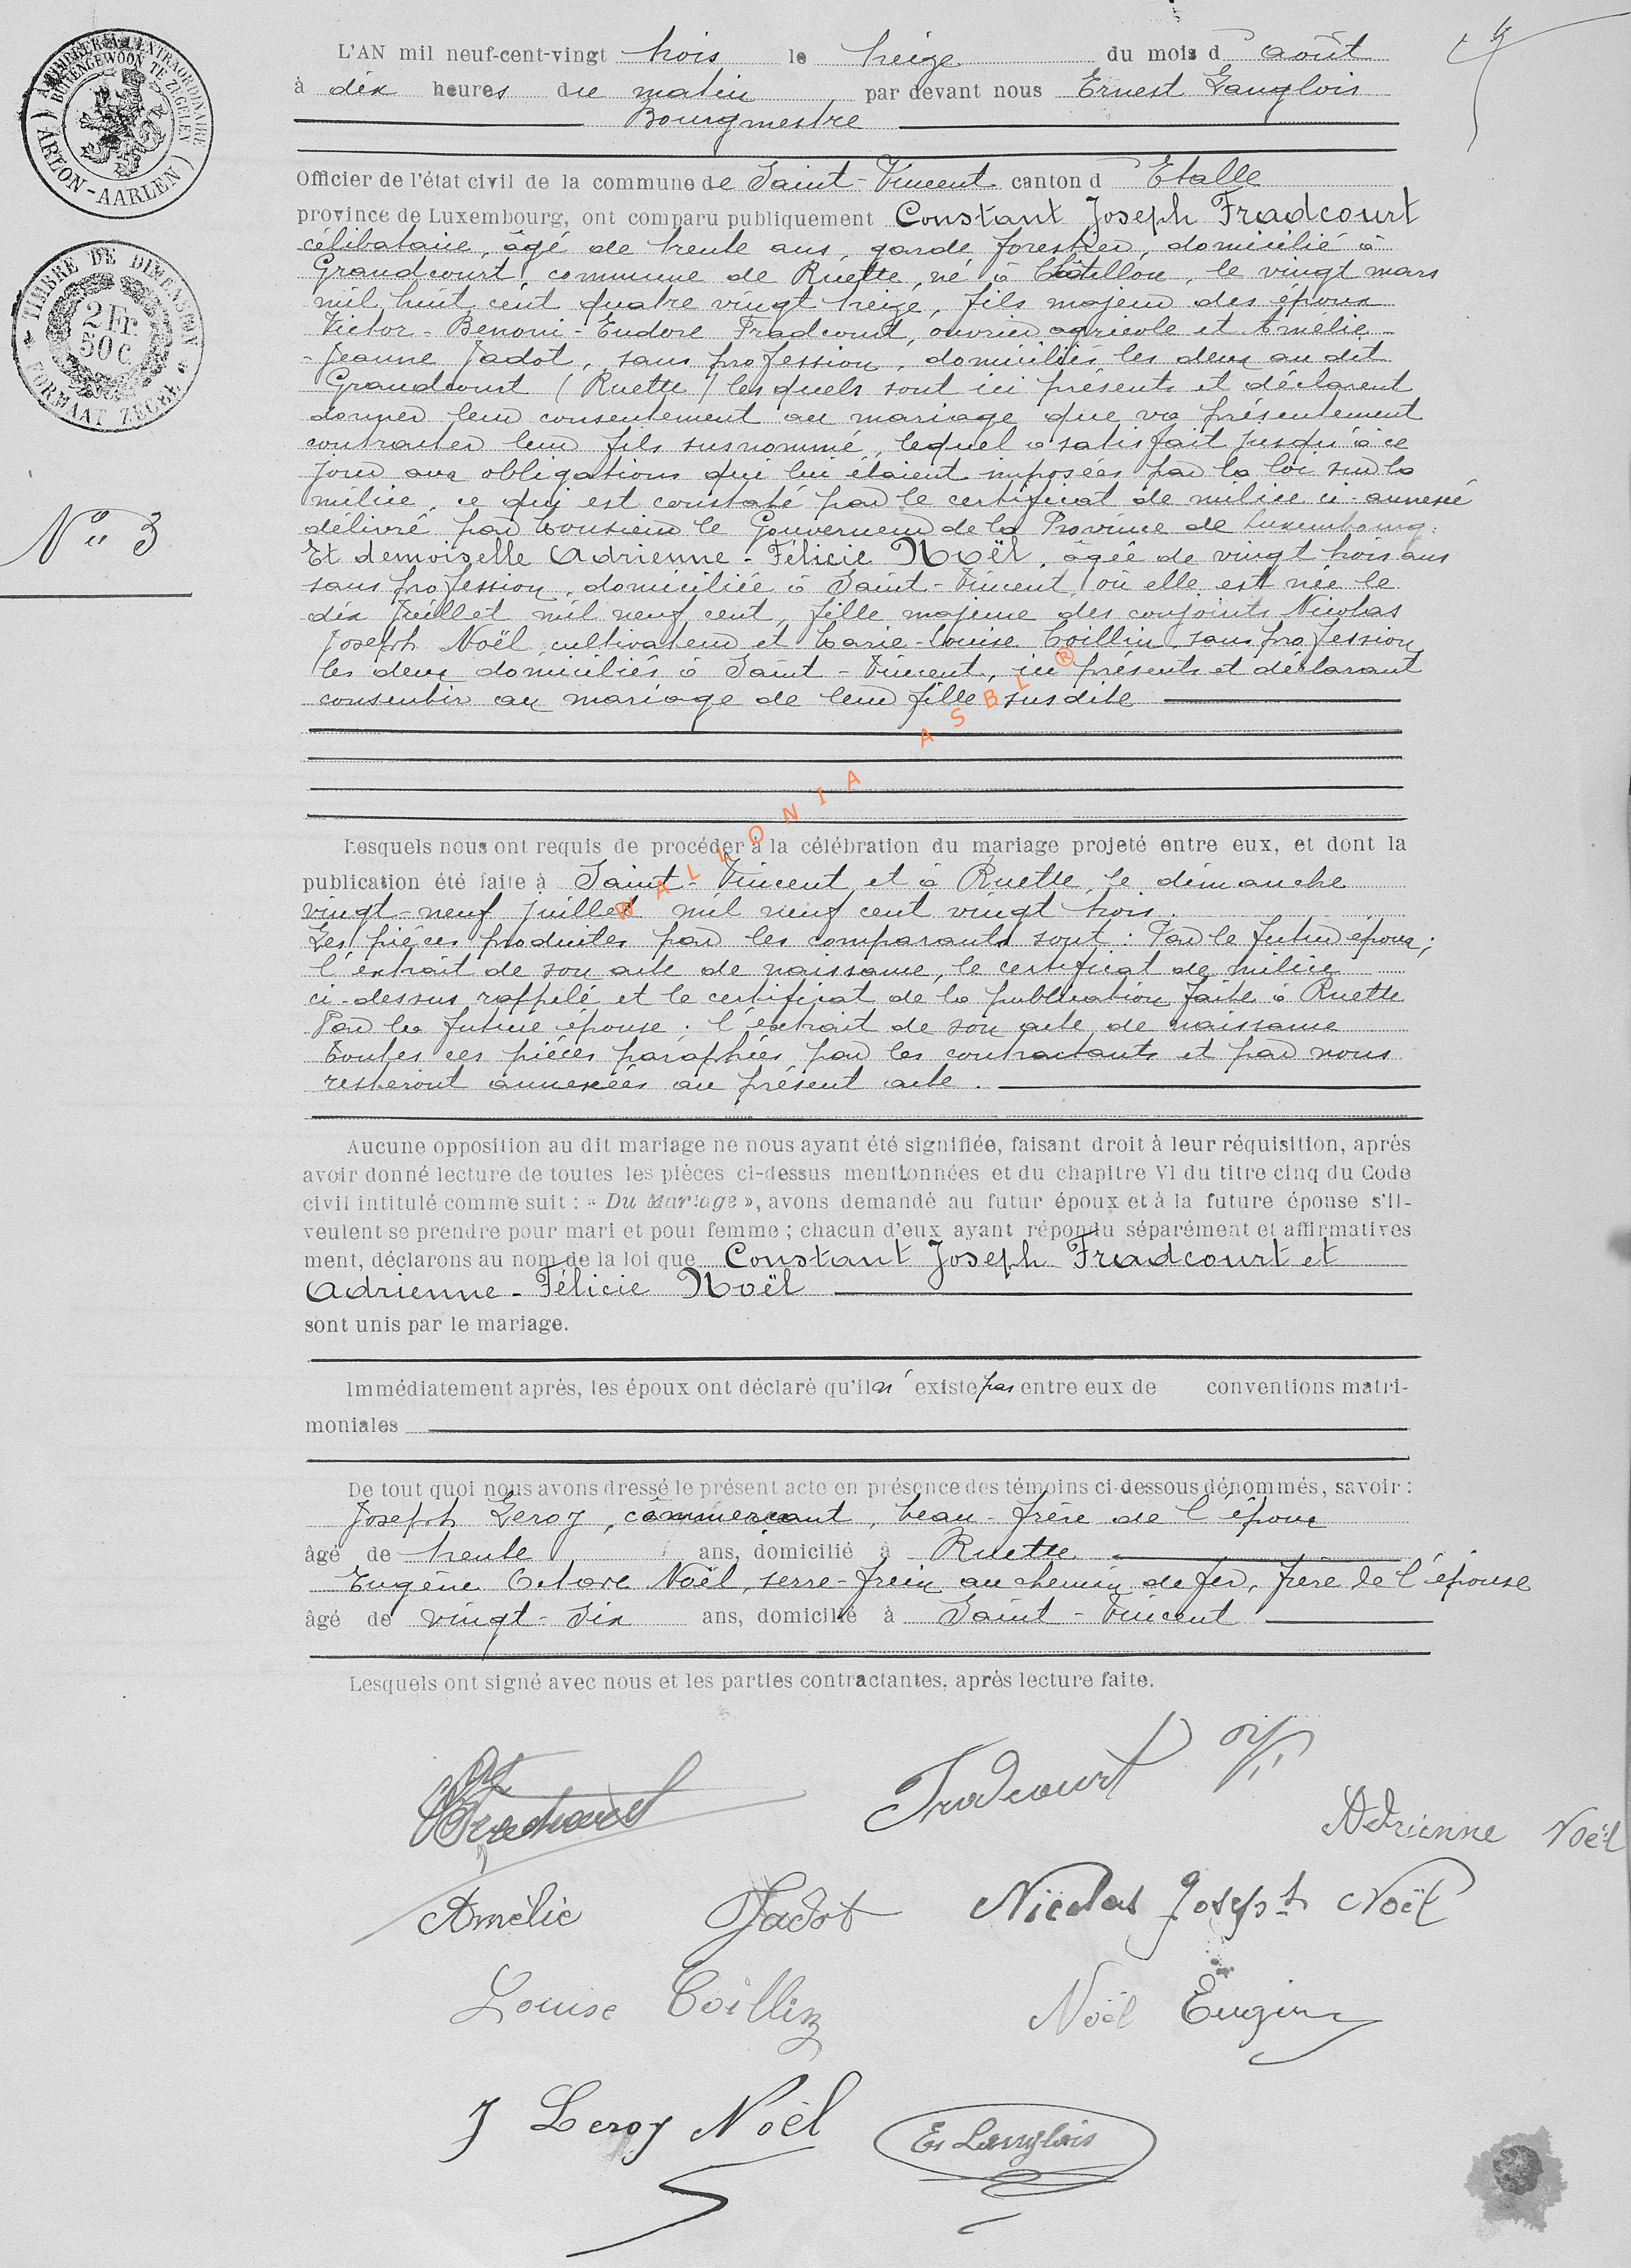 L'AN mil neuf-cent-vingt trois le treize du mois d août
à dix heures du matin par devant nous Ernest Langlois
Bourgmestre
Officier de l'état civil de la commune de Saint-Vincent canton d' Etalle
province de Luxembourg, ont comparu publiquement Constant Joseph Fradcourt
célibataire, âgé de trente ans, garde forestier, domicilié à
Grandcourt, commune de Ruette, né à Châtillon, le vingt mars
mil huit cent quatre vingt treize, fils majeur des époux
Victor-Benoni-Eudore Fradcourt, ouvrier agricole et Amélie-
-Jeanne Jadot, sans profession, domiciliés les deux au dit
Grandcourt (Ruette) lesquels sont ici présents et déclarent
donner leur consentement au mariage que va présentement
contracter leur fils susnommé, lequel a satisfait jusqu'à ce
jour aux obligations qui lui étaient imposées par la loi sur la
milice, ce qui est constaté par le certificat de milice ci-annexé
délivré par Monsieur le Gouverneur de la Province de Luxembourg.
Et demoiselle Adrienne-Félicie Noël, âgée de vingt trois ans
sans profession, domiciliée à Saint-Vincent, où elle est née le
dix juillet mil neuf cent, fille majeure des conjoints Nicolas
Joseph Noël, cultivateur et Marie-Louise Toillin, sans profession,
les deux domiciliés à Saint-Vincent, ici présents et déclarant
consentir au mariage de leur fille susdite
Lesquels nous ont requis de procéder à la célébration du mariage projeté entre eux, et dont la
publication été faite à Saint-Vincent et à Ruette, le dimanche
vingt-neuf juillet mil neuf cent vingt trois.
Les pièces produites par les comparants sont : Par le futur époux;
l'extrait de son acte de naissance, le certificat de milice
ci-dessus rappelé et le certificat de la publication faite à Ruette
Par la future épouse : l'extrait de son acte de naissance
Toutes ces pièces paraphées par les contractants et par nous
resteront annexées au présent acte.
Aucune opposition au dit mariage ne nous ayant été signifiée, faisant droit à leur réquisition, après
avoir donné lecture de toutes les pièces ci-dessus mentionnées et du chapitre VI du titre cinq du Code
civil intitulé comme suit : « Du Mariage », avons demandé au futur époux et à la future épouse s'il-
veulent se prendre pour mari et pour femme ; chacun d'eux ayant répondu séparément et affirmatives
ment, déclarons au nom de la loi que Constant Joseph Fradcourt et
Adrienne-Félicie Noël
sont unis par le mariage.
Immédiatement après, les époux ont déclaré qu'il n' existe pas entre eux de conventions matri-
moniales
De tout quoi nous avons dressé le présent acte en présence des témoins ci-dessous dénommés, savoir :
Joseph Leroy, commerçant, beau-frère de l'époux
âgé de trente ans, domicilié à Ruette
Eugène Octave Noël, serre-frein au chemin de fer, frère de l'épouse
âgé de vingt-six ans, domicilié à Saint-Vincent
Lesquels ont signé avec nous et les parties contractantes, après lecture faite.
Fradcourt
Adrienne Noël
Amélie Jadot Nicolas Joseph Noël
Louise Toillin Noël Eugène
J Leroy Noël Er Langlois
(TIMBRER A L'EXTRAORDINAIRE
BUITENGEWOON TE ZEGELEN
(ARLON-AARLEN)
TIMBRE DE DIMENSION
2 Fr.
50 C
FORMAAT ZEGEL
No 3
WALLONIA ASBL ®